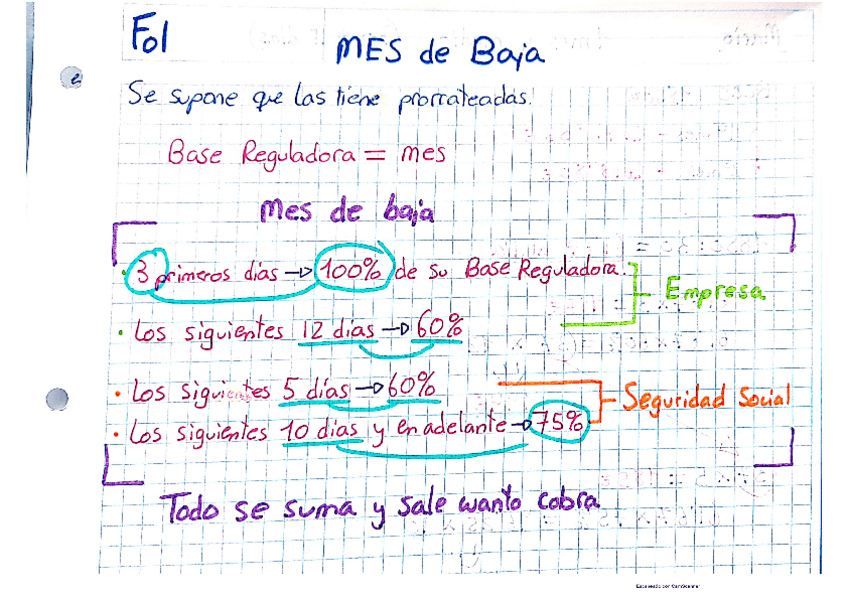 Fol
MES de Baja
Se supone que las tiene prorrateadas.
Base Reguladora = mes
Mes de baja
· 3 primeros días → 100% de su Base Reguladora.
Empresa
· Los siguientes 12 días → 60%
· Los siguientes 5 días → 60%
Seguridad Social
· Los siguientes 10 días y en adelante → 75%
Todo se suma y sale wanto cobra
Escaneado por CamScanner